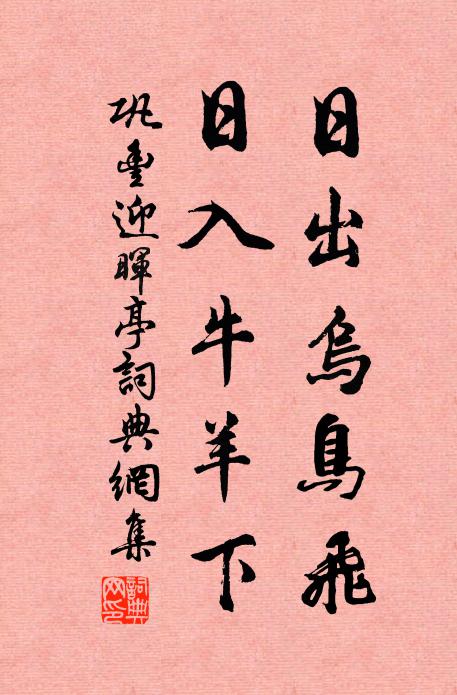 日出烏鳥飛
日入牛羊下
巩豊迎暉亭詞典網集
詞典網印